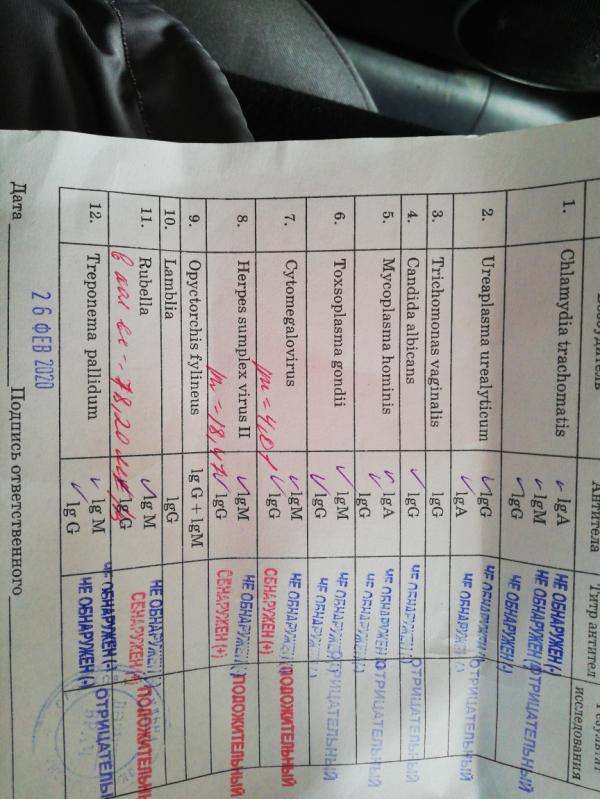 Возбудитель Антитела Титр антител Результат исследования
1. Chlamydia trachomatis IgA НЕ ОБНАРУЖЕН (-)
IgM НЕ ОБНАРУЖЕН (-) ОТРИЦАТЕЛЬНЫЙ
IgG НЕ ОБНАРУЖЕН (-)
2. Ureaplasma urealyticum IgG НЕ ОБНАРУЖЕН (-) ОТРИЦАТЕЛЬНЫЙ
IgA НЕ ОБНАРУЖЕН (-)
3. Trichomonas vaginalis IgG
4. Candida albicans IgG НЕ ОБНАРУЖЕН (-)
5. Mycoplasma hominis IgA НЕ ОБНАРУЖЕН ОТРИЦАТЕЛЬНЫЙ
IgG
6. Toxsoplasma gondii IgM НЕ ОБНАРУЖЕН ОТРИЦАТЕЛЬНЫЙ
IgG НЕ ОБНАРУЖЕН (-)
7. Cytomegalovirus IgM НЕ ОБНАРУЖЕН ПОЛОЖИТЕЛЬНЫЙ
IgG ОБНАРУЖЕН (+)
8. Herpes sumplex virus II IgM НЕ ОБНАРУЖЕН ПОЛОЖИТЕЛЬНЫЙ
= 18,47 IgG ОБНАРУЖЕН (+)
9. Opyctorchis fylineus Ig G + IgM
10. Lamblia IgG
11. Rubella Ig M НЕ ОБНАРУЖЕН ПОЛОЖИТЕЛЬНЫЙ
78,20 Ig G ОБНАРУЖЕН (+)
12. Treponema pallidum Ig M НЕ ОБНАРУЖЕН (-) ОТРИЦАТЕЛЬНЫЙ
Ig G НЕ ОБНАРУЖЕН (-)
26 ФЕВ 2020
Дата Подпись ответственного